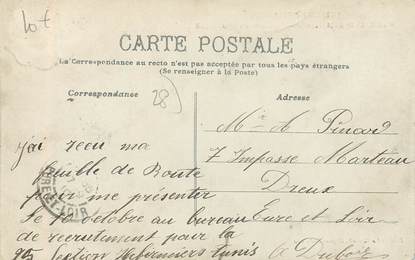 lot
CARTE POSTALE
La Correspondance au recto n'est pas acceptée par tous les pays étrangers
(Se renseigner à la Poste)
Correspondance
28
Adresse
Mr A Pinard
7 Impasse Marteau
Dreux
Eure et Loir
j'ai recu ma
feuille de Route
pour me présenter
Le octobre au bureau
de recrutement pour la
section infirmiers tunis
EURE-ET-LOIR